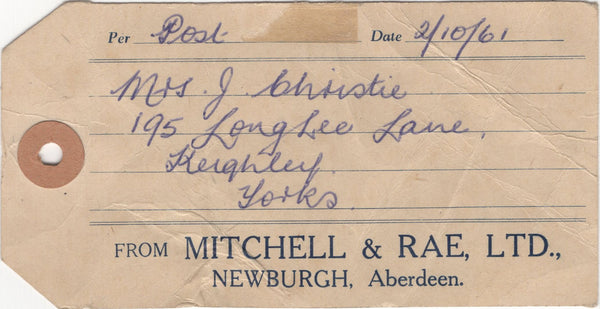 Per Post Date 2/10/61
Mrs. J. Christie
195 Longlee Lane,
Keighley.
Yorks.
FROM MITCHELL & RAE, LTD.,
NEWBURGH, Aberdeen.